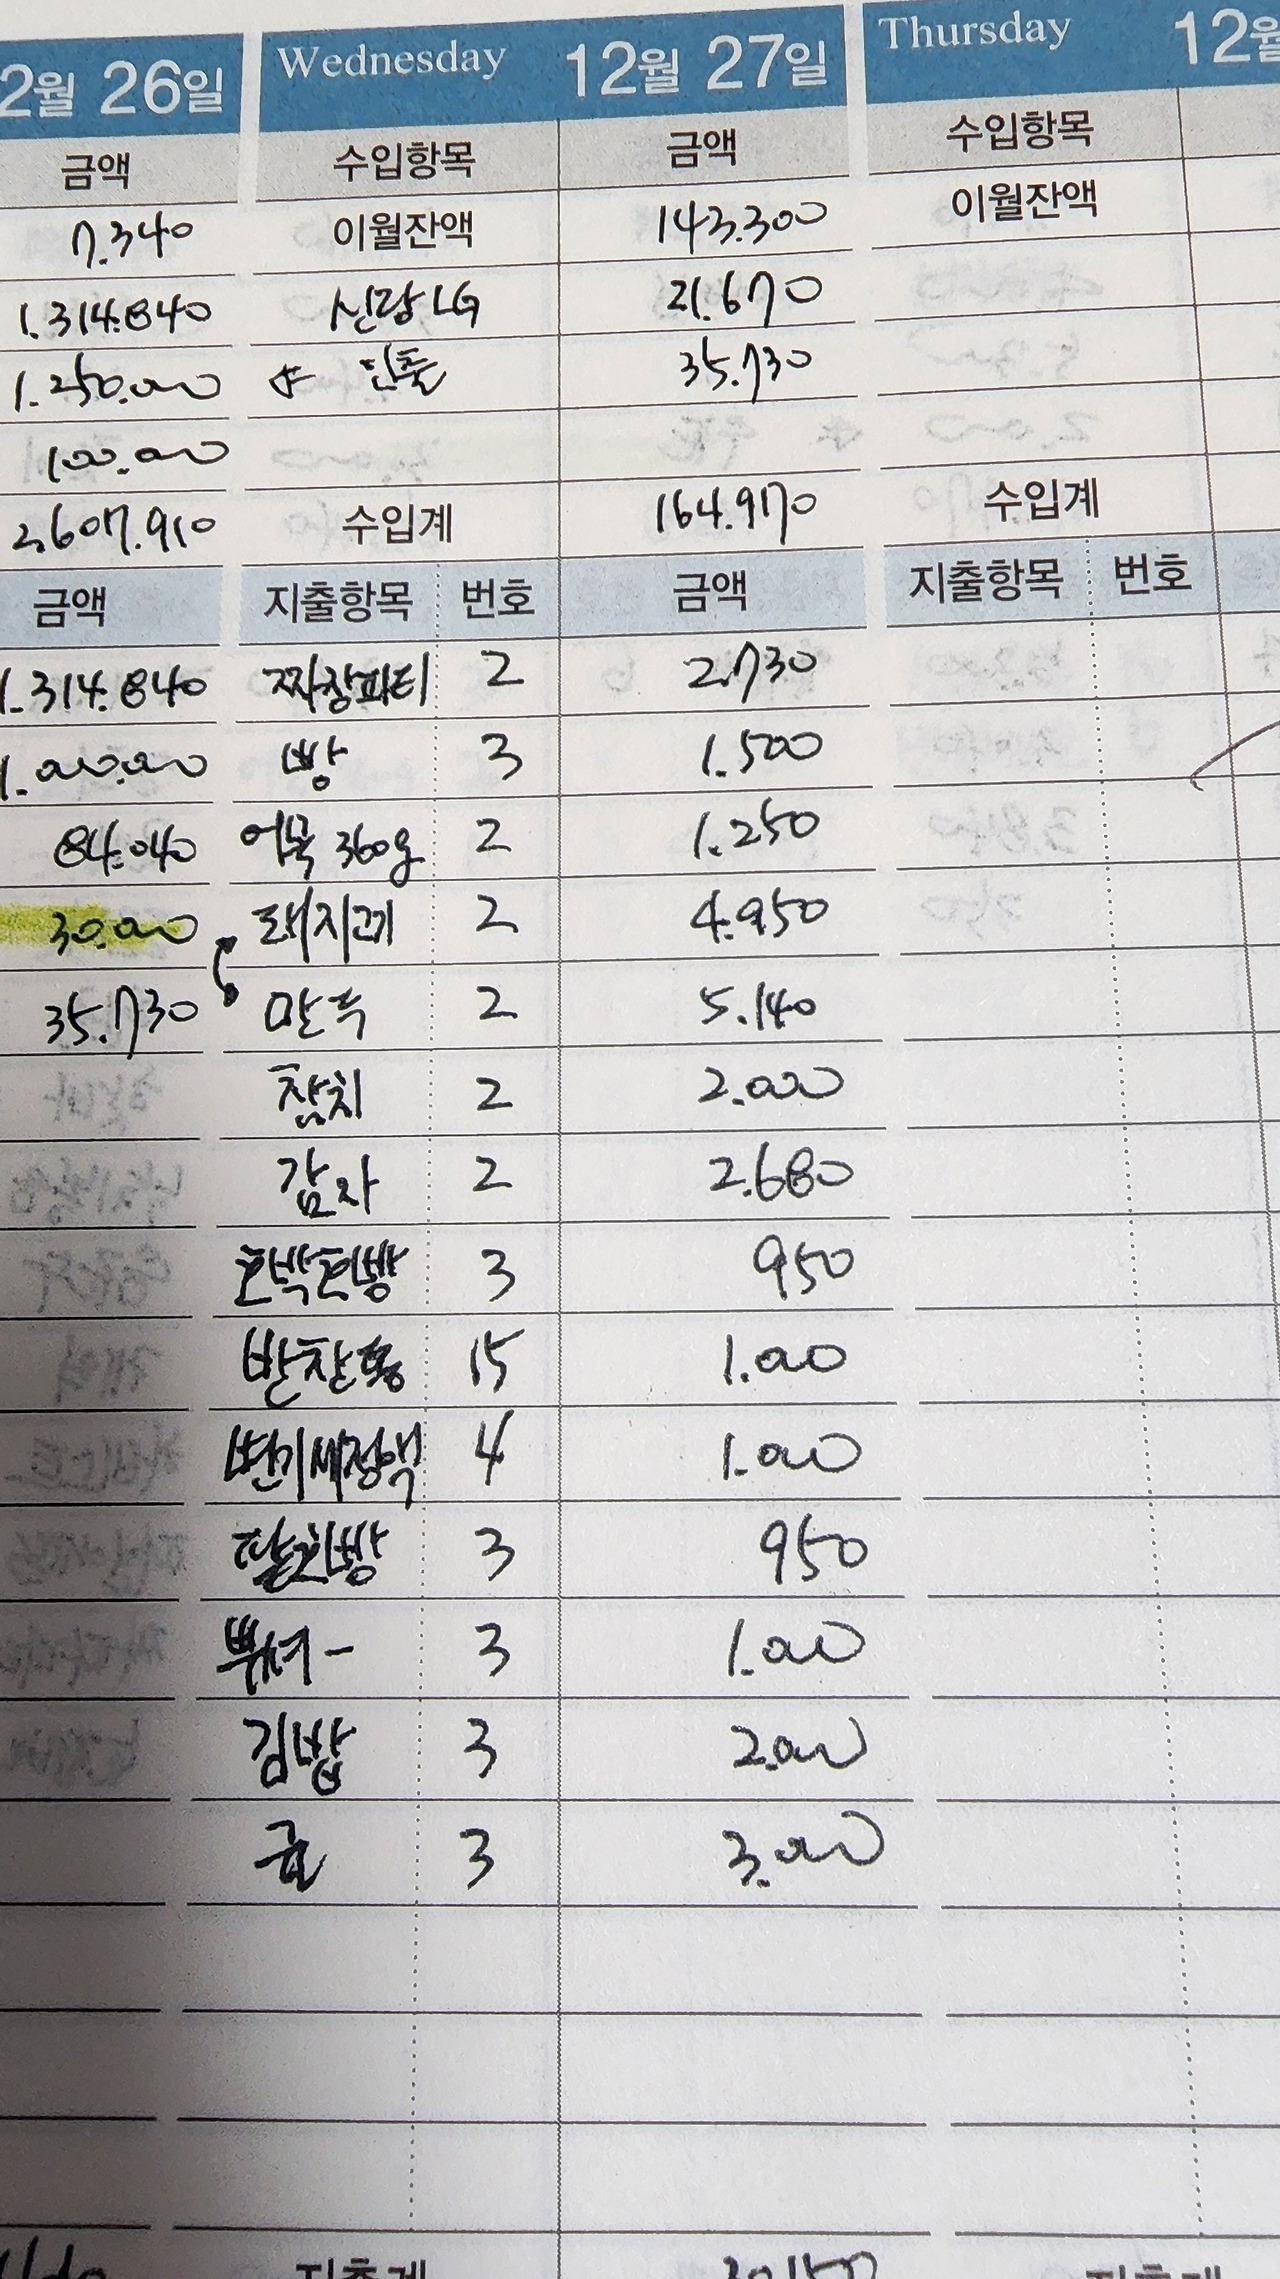 2월 26일 Wednesday 12월 27일 Thursday 12월
금액 수입항목 금액 수입항목
7.340 이월잔액 143.300 이월잔액
1.314.840 신랑 LG 21.670
1.250.000 35.730
100.000
2.607.910 수입계 164.970 수입계
금액 지출항목 번호 금액 지출항목 번호
1.314.840 짜장파티 2 2.730
1.000.000 빵 3 1.500
84.040 어묵 360g 2 1.250
30.000 돼지고기 2 4.950
35.730 만두 2 5.140
참치 2 2.000
감자 2 2.680
호박전빵 3 950
반찬통 15 1.000
변기세정액 4 1.000
3 950
3 1.000
김밥 3 2.000
귤 3 3.000
지출계 30.150 지출계